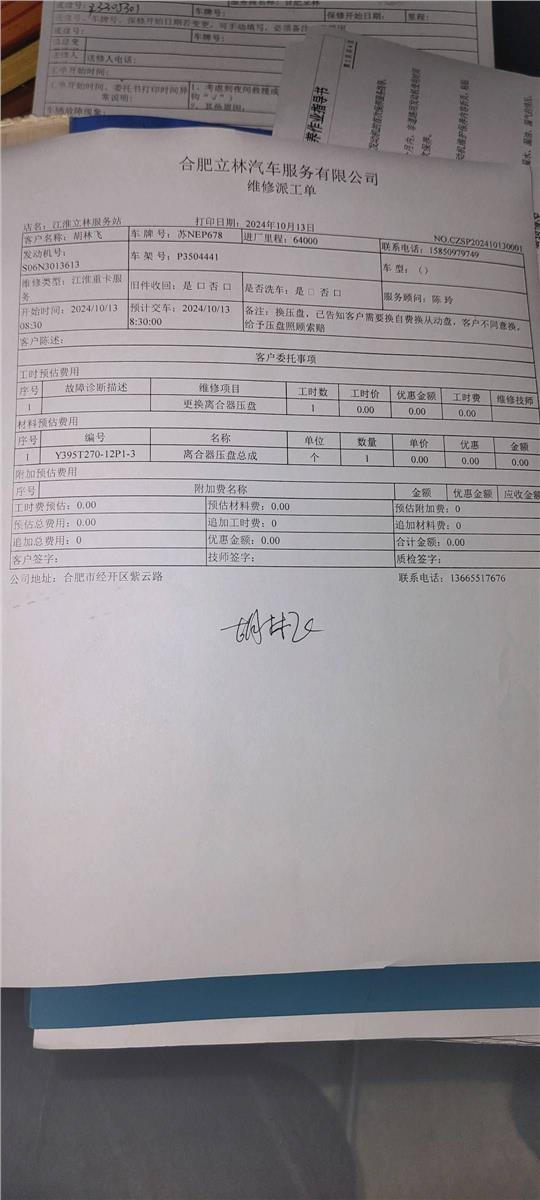 车牌号：
保修开始日期：
里程：
车牌号：
送修人电话：
工单开始时间：
合肥立林汽车服务有限公司
维修派工单
店名：江淮立林服务站 打印日期：2024年10月13日 NO.CZSP202410130001
客户名称：胡林飞 车 牌 号：苏NEP678 进厂里程：64000 联系电话：15850979749
发动机号：
S06N3013613 车 架 号：P3504441 车 型：（）
维修类型：江淮重卡服
务 旧件收回：是 口 否 口 是否洗车：是 □ 否 口 服务顾问：陈 玲
开始时间：2024/10/13
08:30 预计交车：2024/10/13
8:30:00 备注：换压盘，已告知客户需要换自费换从动盘，客户不同意换，
给予压盘照顾索赔
客户陈述：
客户委托事项
工时预估费用
序号 故障诊断描述 维修项目 工时数 工时价 优惠金额 工时费 维修技师
1 更换离合器压盘 1 0.00 0.00 0.00
材料预估费用
序号 编号 名称 单位 数量 单价 优惠 金额
1 Y395T270-12P1-3 离合器压盘总成 个 1 0.00 0.00 0.00
附加预估费用
序号 附加费名称 金额 优惠金额 应收金额
工时费预估：0.00 预估材料费：0.00 预估附加费：0
预估总费用：0.00 追加工时费：0 追加材料费：0
追加总费用：0 优惠金额：0.00 合计金额：0.00
客户签字： 技师签字： 质检签字：
公司地址：合肥市经开区紫云路 联系电话：13665517676
胡林飞